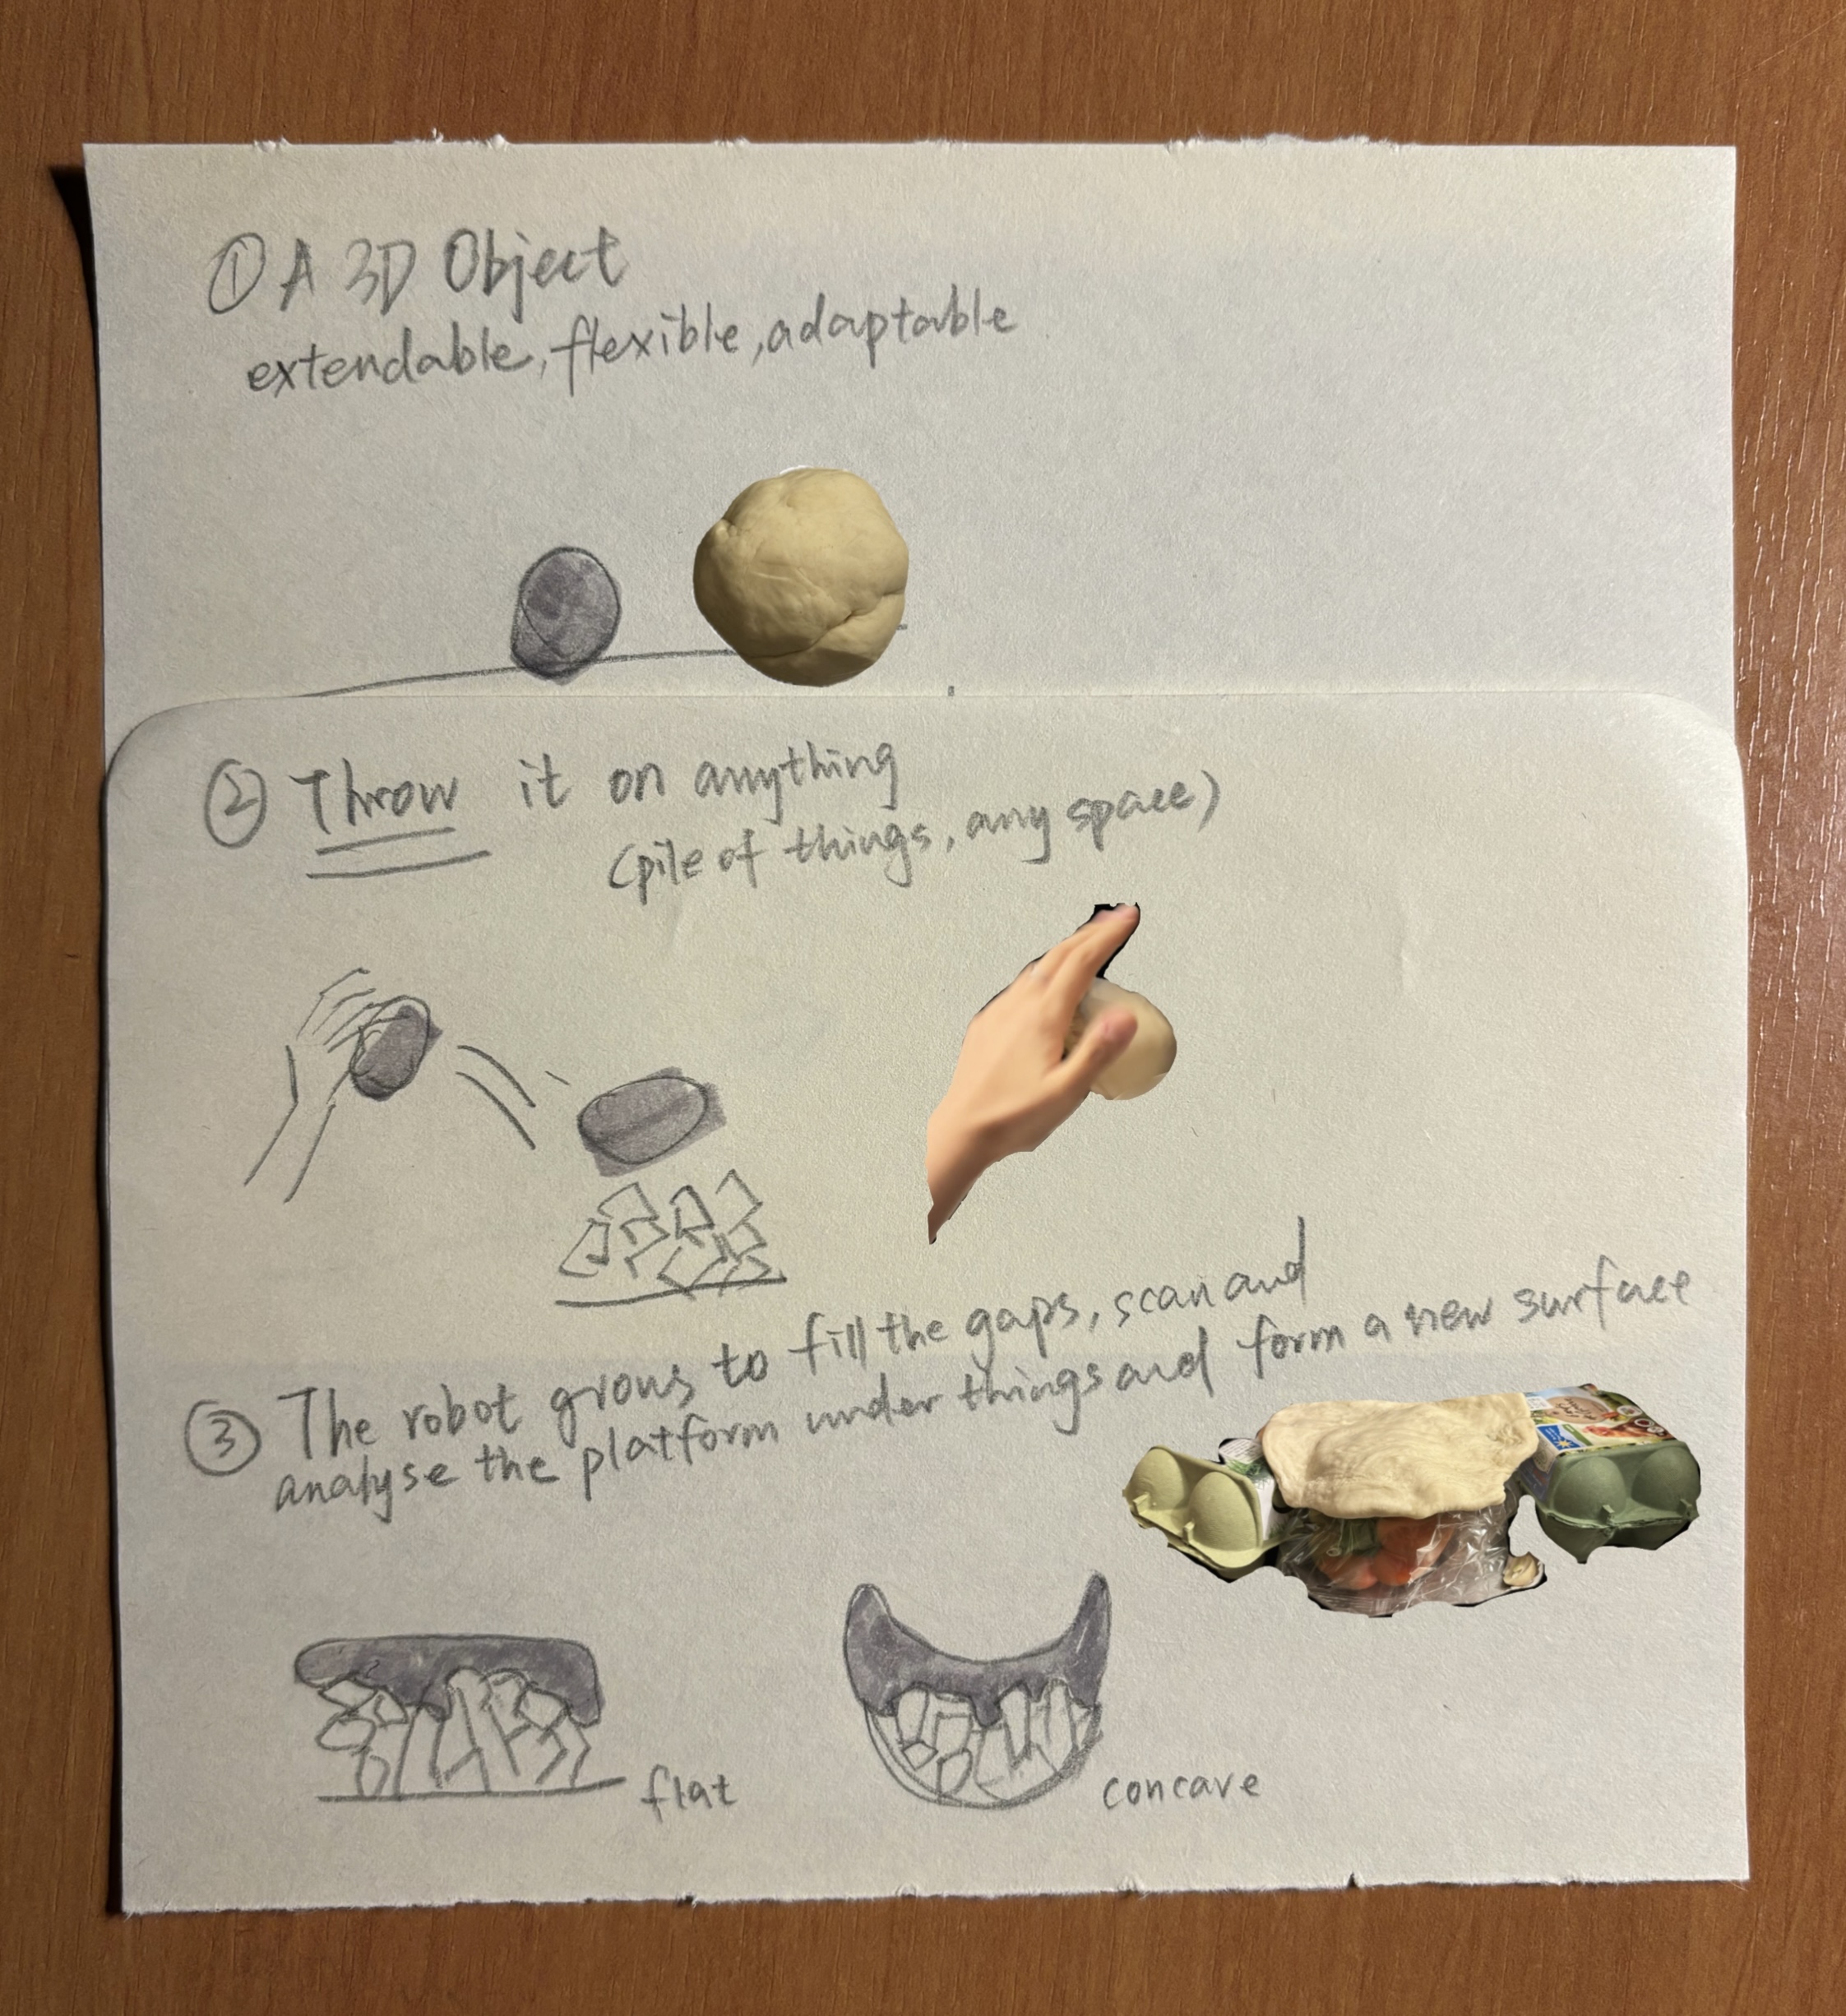 ① A 3D Object
extendable, flexible, adaptable
② Throw it on anything
(pile of things, any space)
③ The robot grows to fill the gaps, scan and
analyse the platform under things and form a new surface
flat
concave